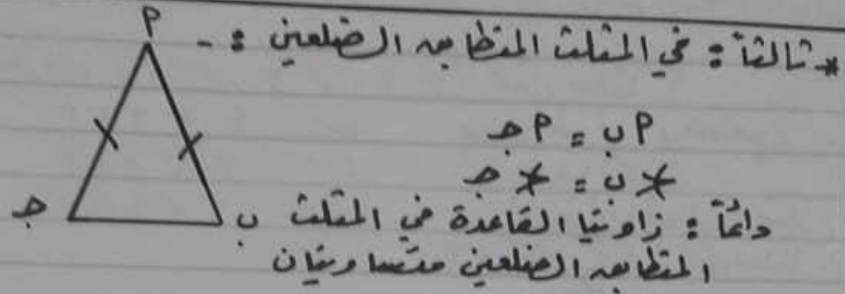 * ثالثاً : في المثلث المتطابق الضلعين : -
أ
أب = أج
∠ب = ∠ج
ج
ب
دائماً : زاويتا القاعدة في المثلث
المتطابق الضلعين متساويتان